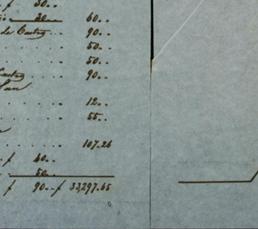 30..
30.. 60..
de Castro 90..
50..
50..
90..
12..
55..
107.26
f 40..
50..
f 90..f 33,297.65